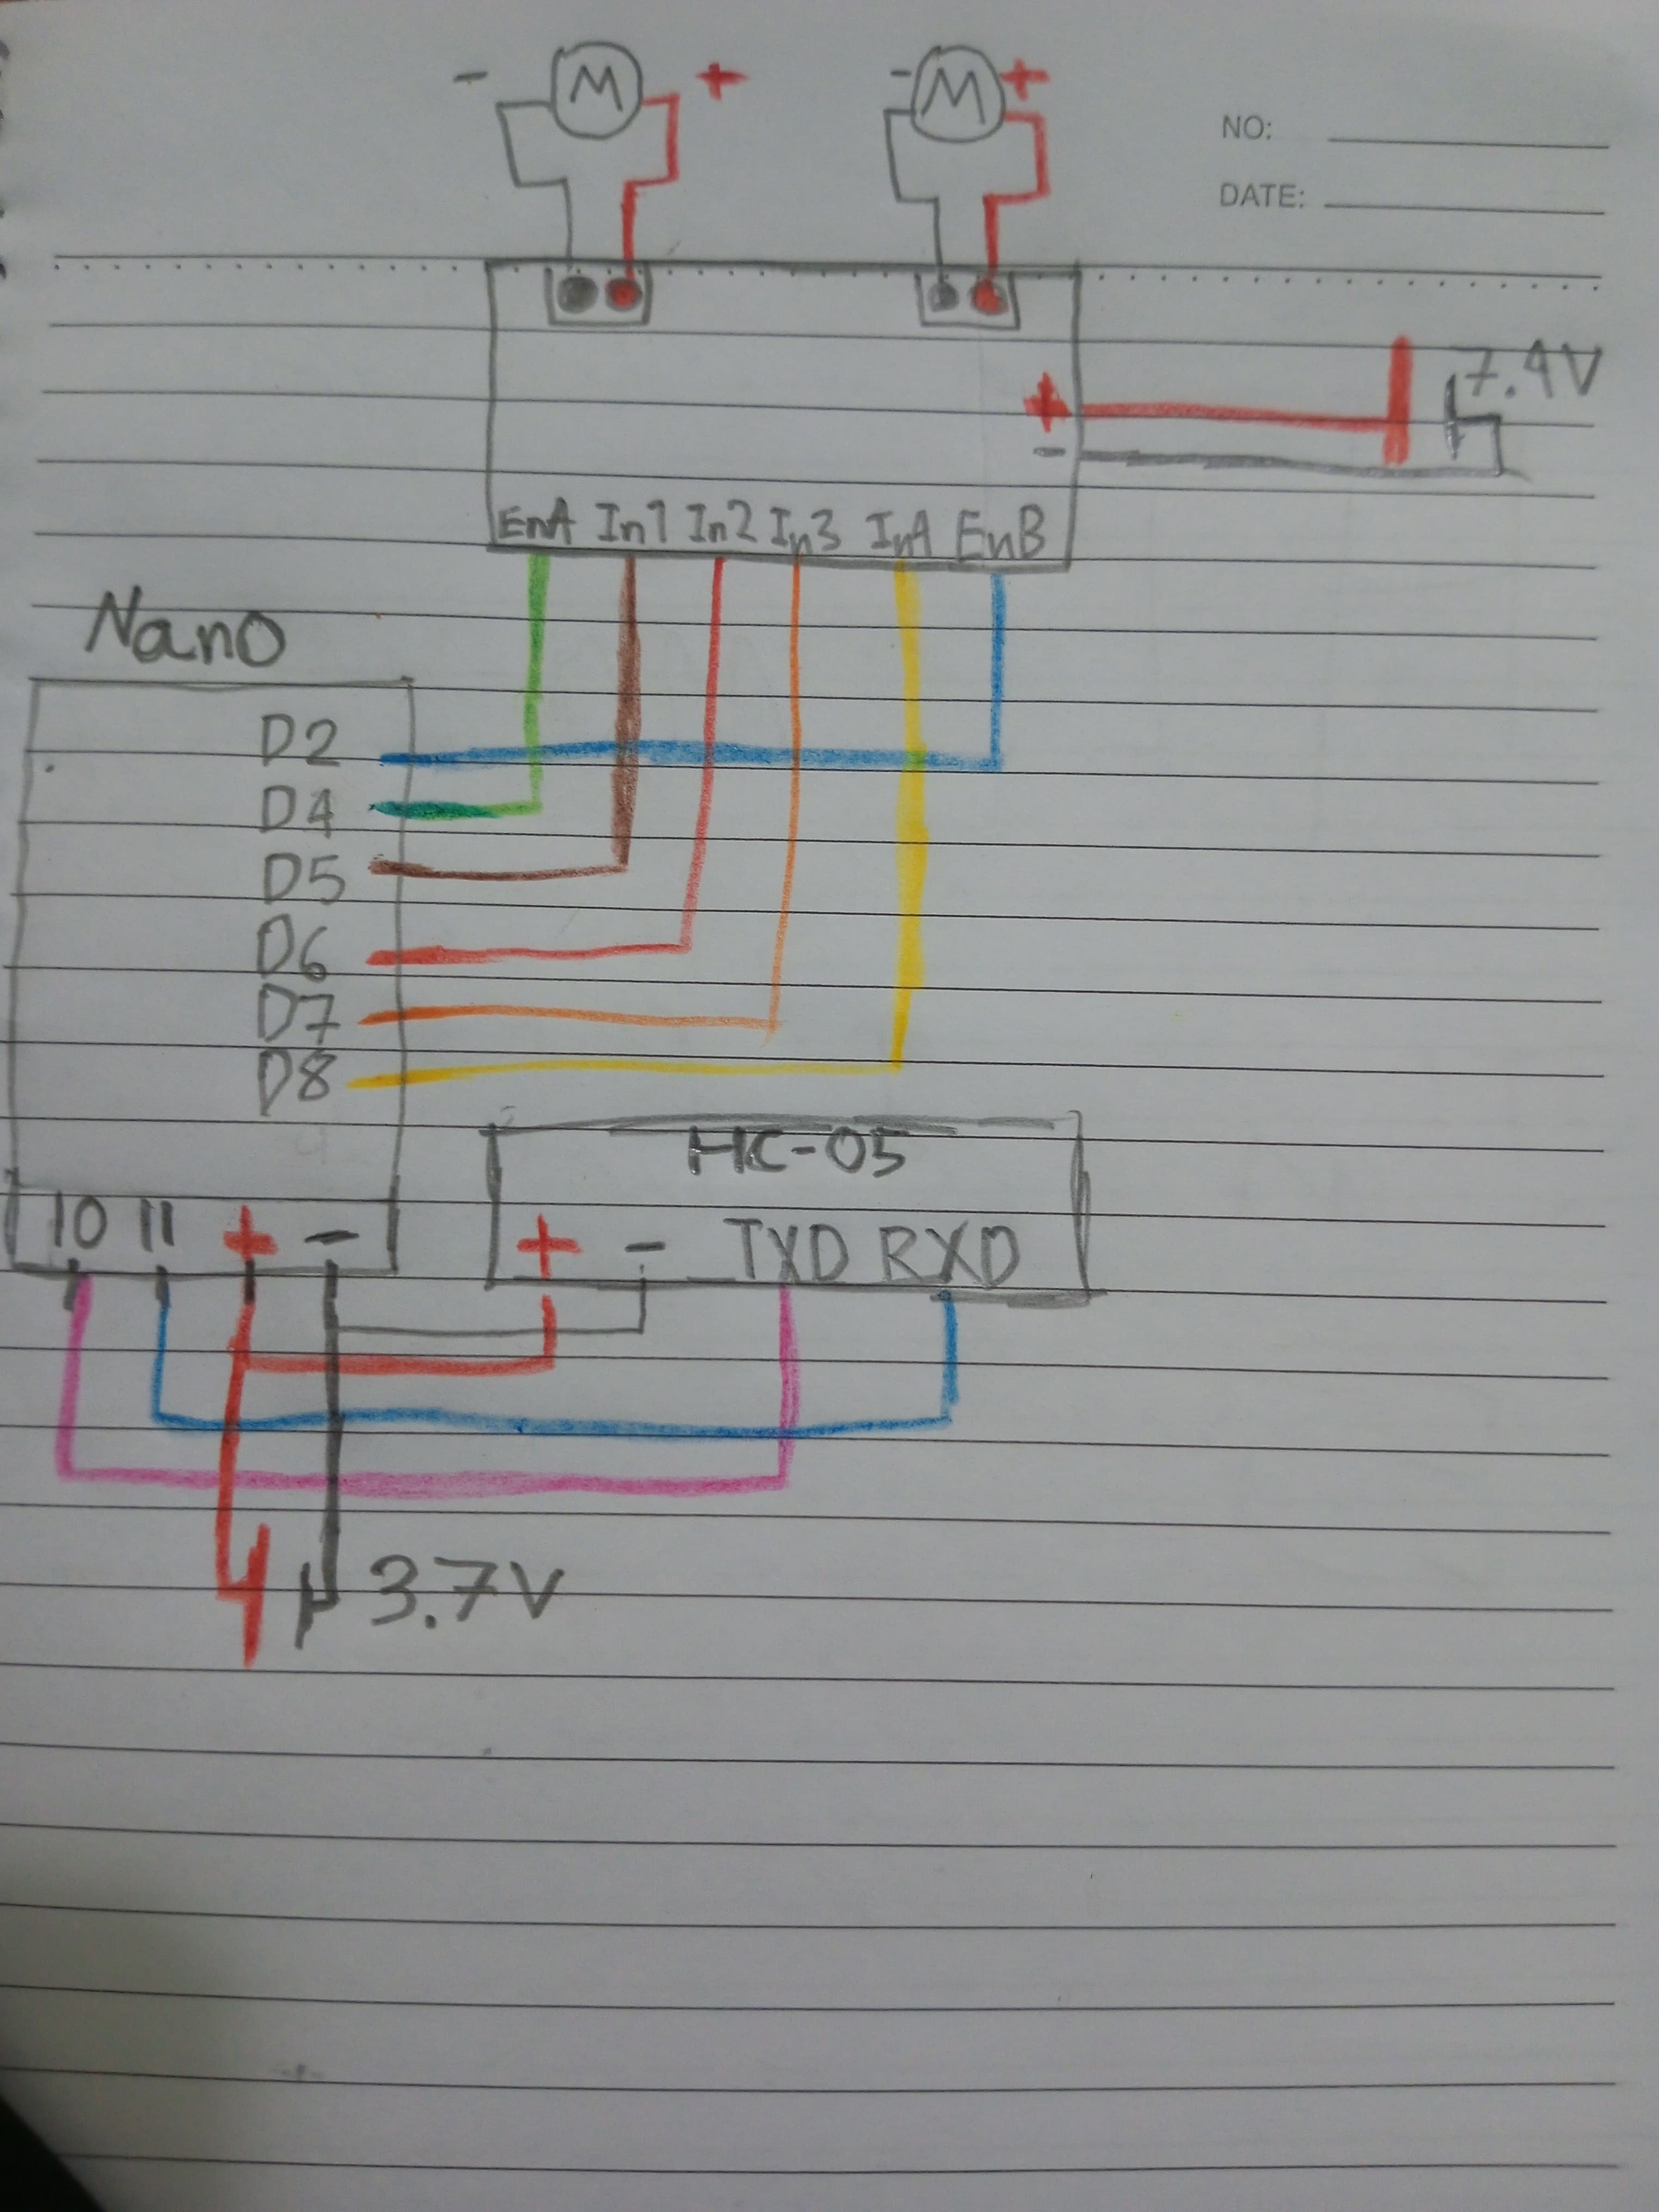 - M + - M +
NO:
DATE:
7.4V
+
-
EnA In1 In2 In3 In4 EnB
Nano
D2
D4
D5
D6
D7
D8
HC-05
10 11 + -
+ - TXD RXD
3.7V